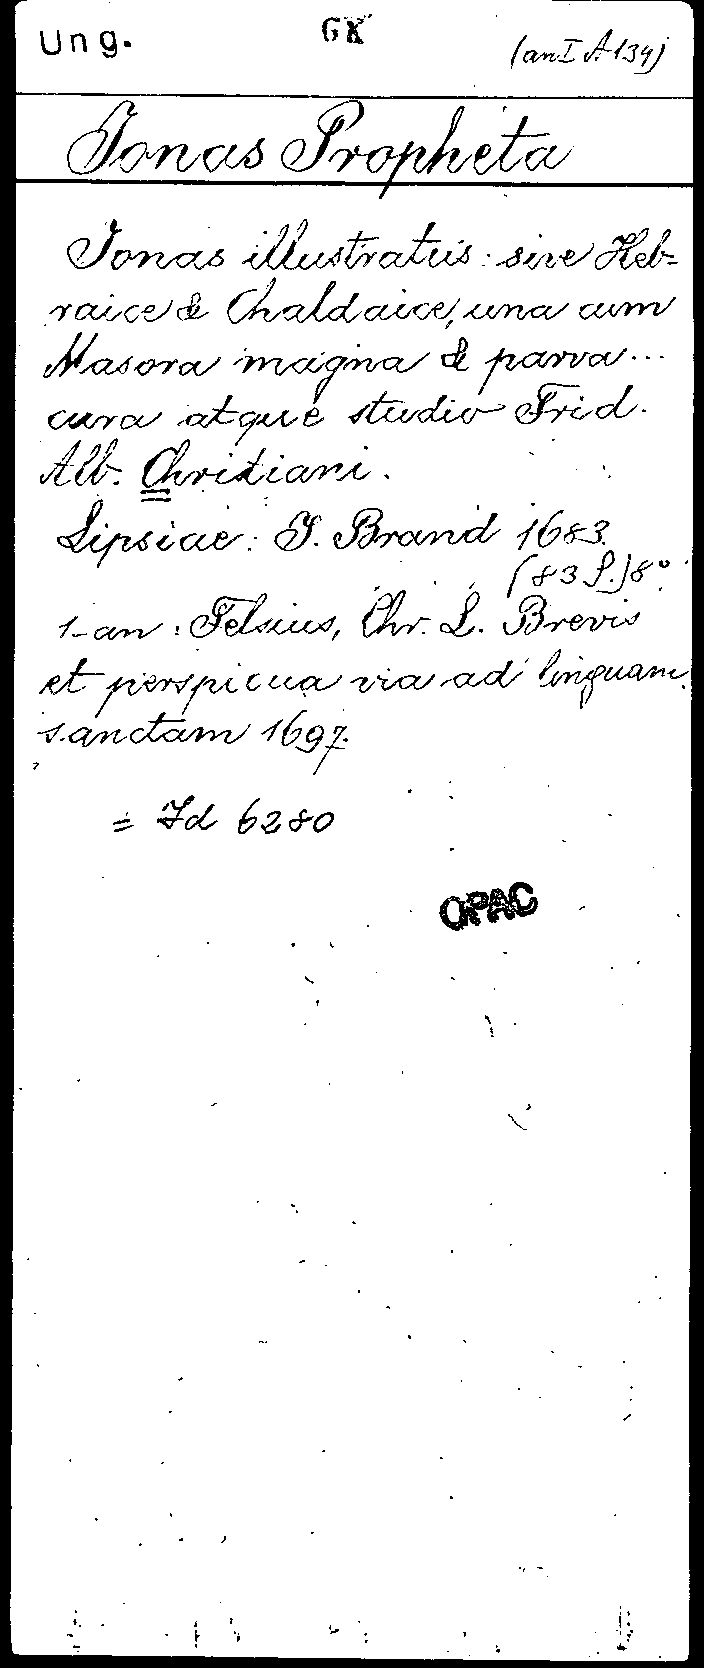 Ung.
GK
(an I A 134)
Jonas Propheta
Jonas illustratus: sive Heb-
raice & Chaldaice, una cum
Masora magna & parva...
cura atque studio Frid.
Alb. Christiani.
Lipsiae: J. Brand 1683.
(83 S.) 8°
1-an: Felsius, Chr. L. Brevis
et perspicua via ad linguam
sanctam 1697.
= Id 6280
OPAC